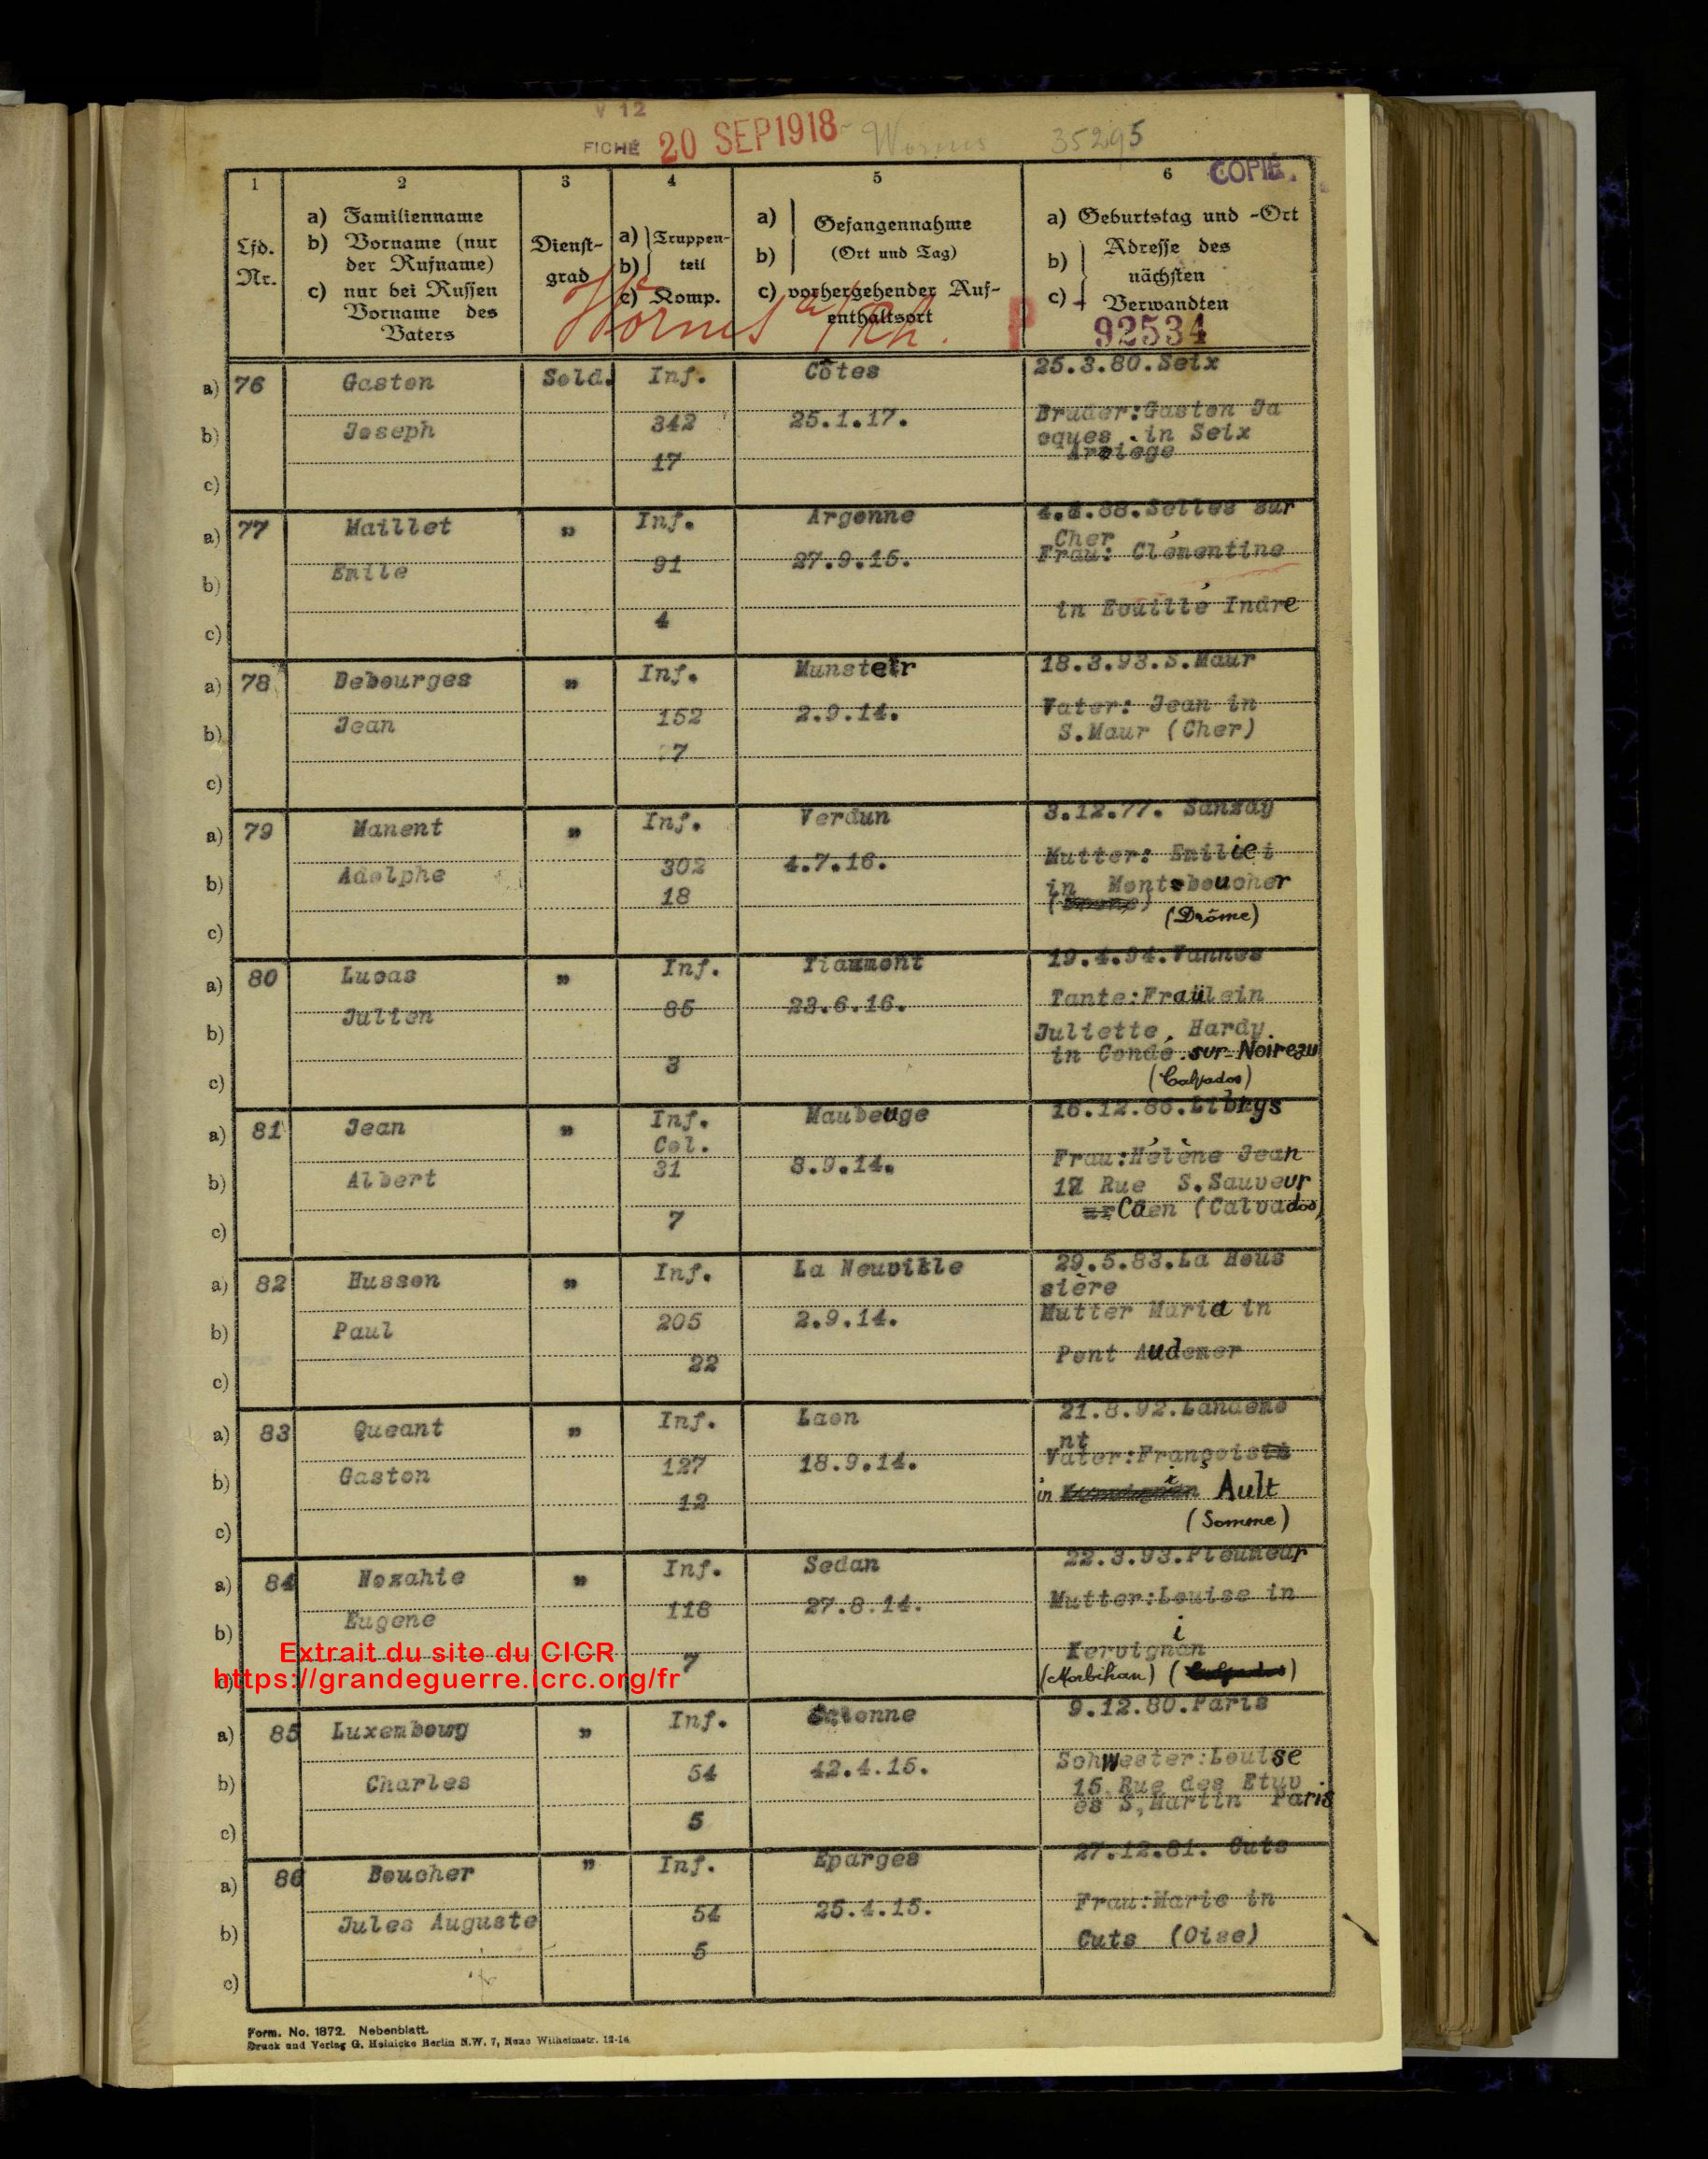 V 12
FICHÉ 20 SEP 1918 Worms 35295
COPIÉ.
1 2 3 4 5 6
Lfd. Nr.
a) Familienname
b) Vorname (nur der Rufname)
c) nur bei Russen Vorname des Vaters
Dienst-grad
a) Truppen-
b) teil
c) Komp.
a) Gefangennahme
b) (Ort und Tag)
c) vorhergehender Auf-enthaltsort
a) Geburtstag und -Ort
b) Adresse des
c) nächsten Verwandten
Worms a/Rh.
P
92534
a) 76 Gaston Sold. Inf. Côtes 25.3.80.Seix
b) Joseph 342 25.1.17. Bruder:Gaston Ja
cques in Seix
17 Arriege
c)
a) 77 Maillet " Inf. Argonne 4.4.88.Selles sur
Cher
b) Emile 91 27.9.15. Frau: Clémentine
c) 4 in Indre
a) 78 Debourges " Inf. Munster 18.3.93.S.Maur
b) Jean 152 2.9.14. Vater: Jean in
S.Maur (Cher)
7
c)
a) 79 Manent " Inf. Verdun 3.12.77. Sanzay
b) Adolphe 302 4.7.16. Mutter: Emilie
18 in Montboucher
c) (Drôme)
a) 80 Lucas " Inf. Tiaumont 19.4.94.Vannes
b) Julien 85 23.6.16. Tante:Fraülein
Juliette, Hardy.
3 in Condé.sur-Noireau
c) (Calvados)
a) 81 Jean " Inf. Maubeuge 16.12.86.
Col.
b) Albert 31 8.9.14. Frau:Hélène Jean
17 Rue S.Sauveur
c) 7 Caen (Calvados)
a) 82 Husson " Inf. La Neuville 29.5.83.La Hous
sière
b) Paul 205 2.9.14. Mutter Maria in
c) 22 Pont Audemer
a) 83 Queant " Inf. Laon 21.8.92.Landemo
nt
b) Gaston 127 18.9.14. Vater:François
12 in Ault
c) (Somme)
a) 84 Nozahic " Inf. Sedan 22.3.93.Pleumeur
b) Eugene 118 27.8.14. Mutter:Louise in
7 Kervignan
i
c) (Morbihan)
Extrait du site du CICR
https://grandeguerre.icrc.org/fr
a) 85 Luxembourg " Inf. 9.12.80.Paris
b) Charles 54 42.4.15. Schwester:Louise
15,Rue des Etuv
c) 5 es S,Martin Paris
a) 86 Boucher " Inf. Eparges 27.12.81. Cuts
b) Jules Auguste 54 25.4.15. Frau:Marie in
5 Cuts (Oise)
c)
Form. No. 1872. Nebenblatt.
Druck und Verlag G. Heinicke Berlin N.W. 7, Neue Wilhelmstr. 12-14